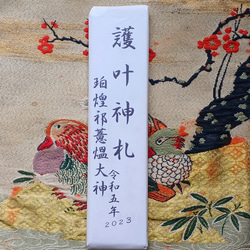 護叶神札
珀煌祁薏熅大神
令和五年
2023